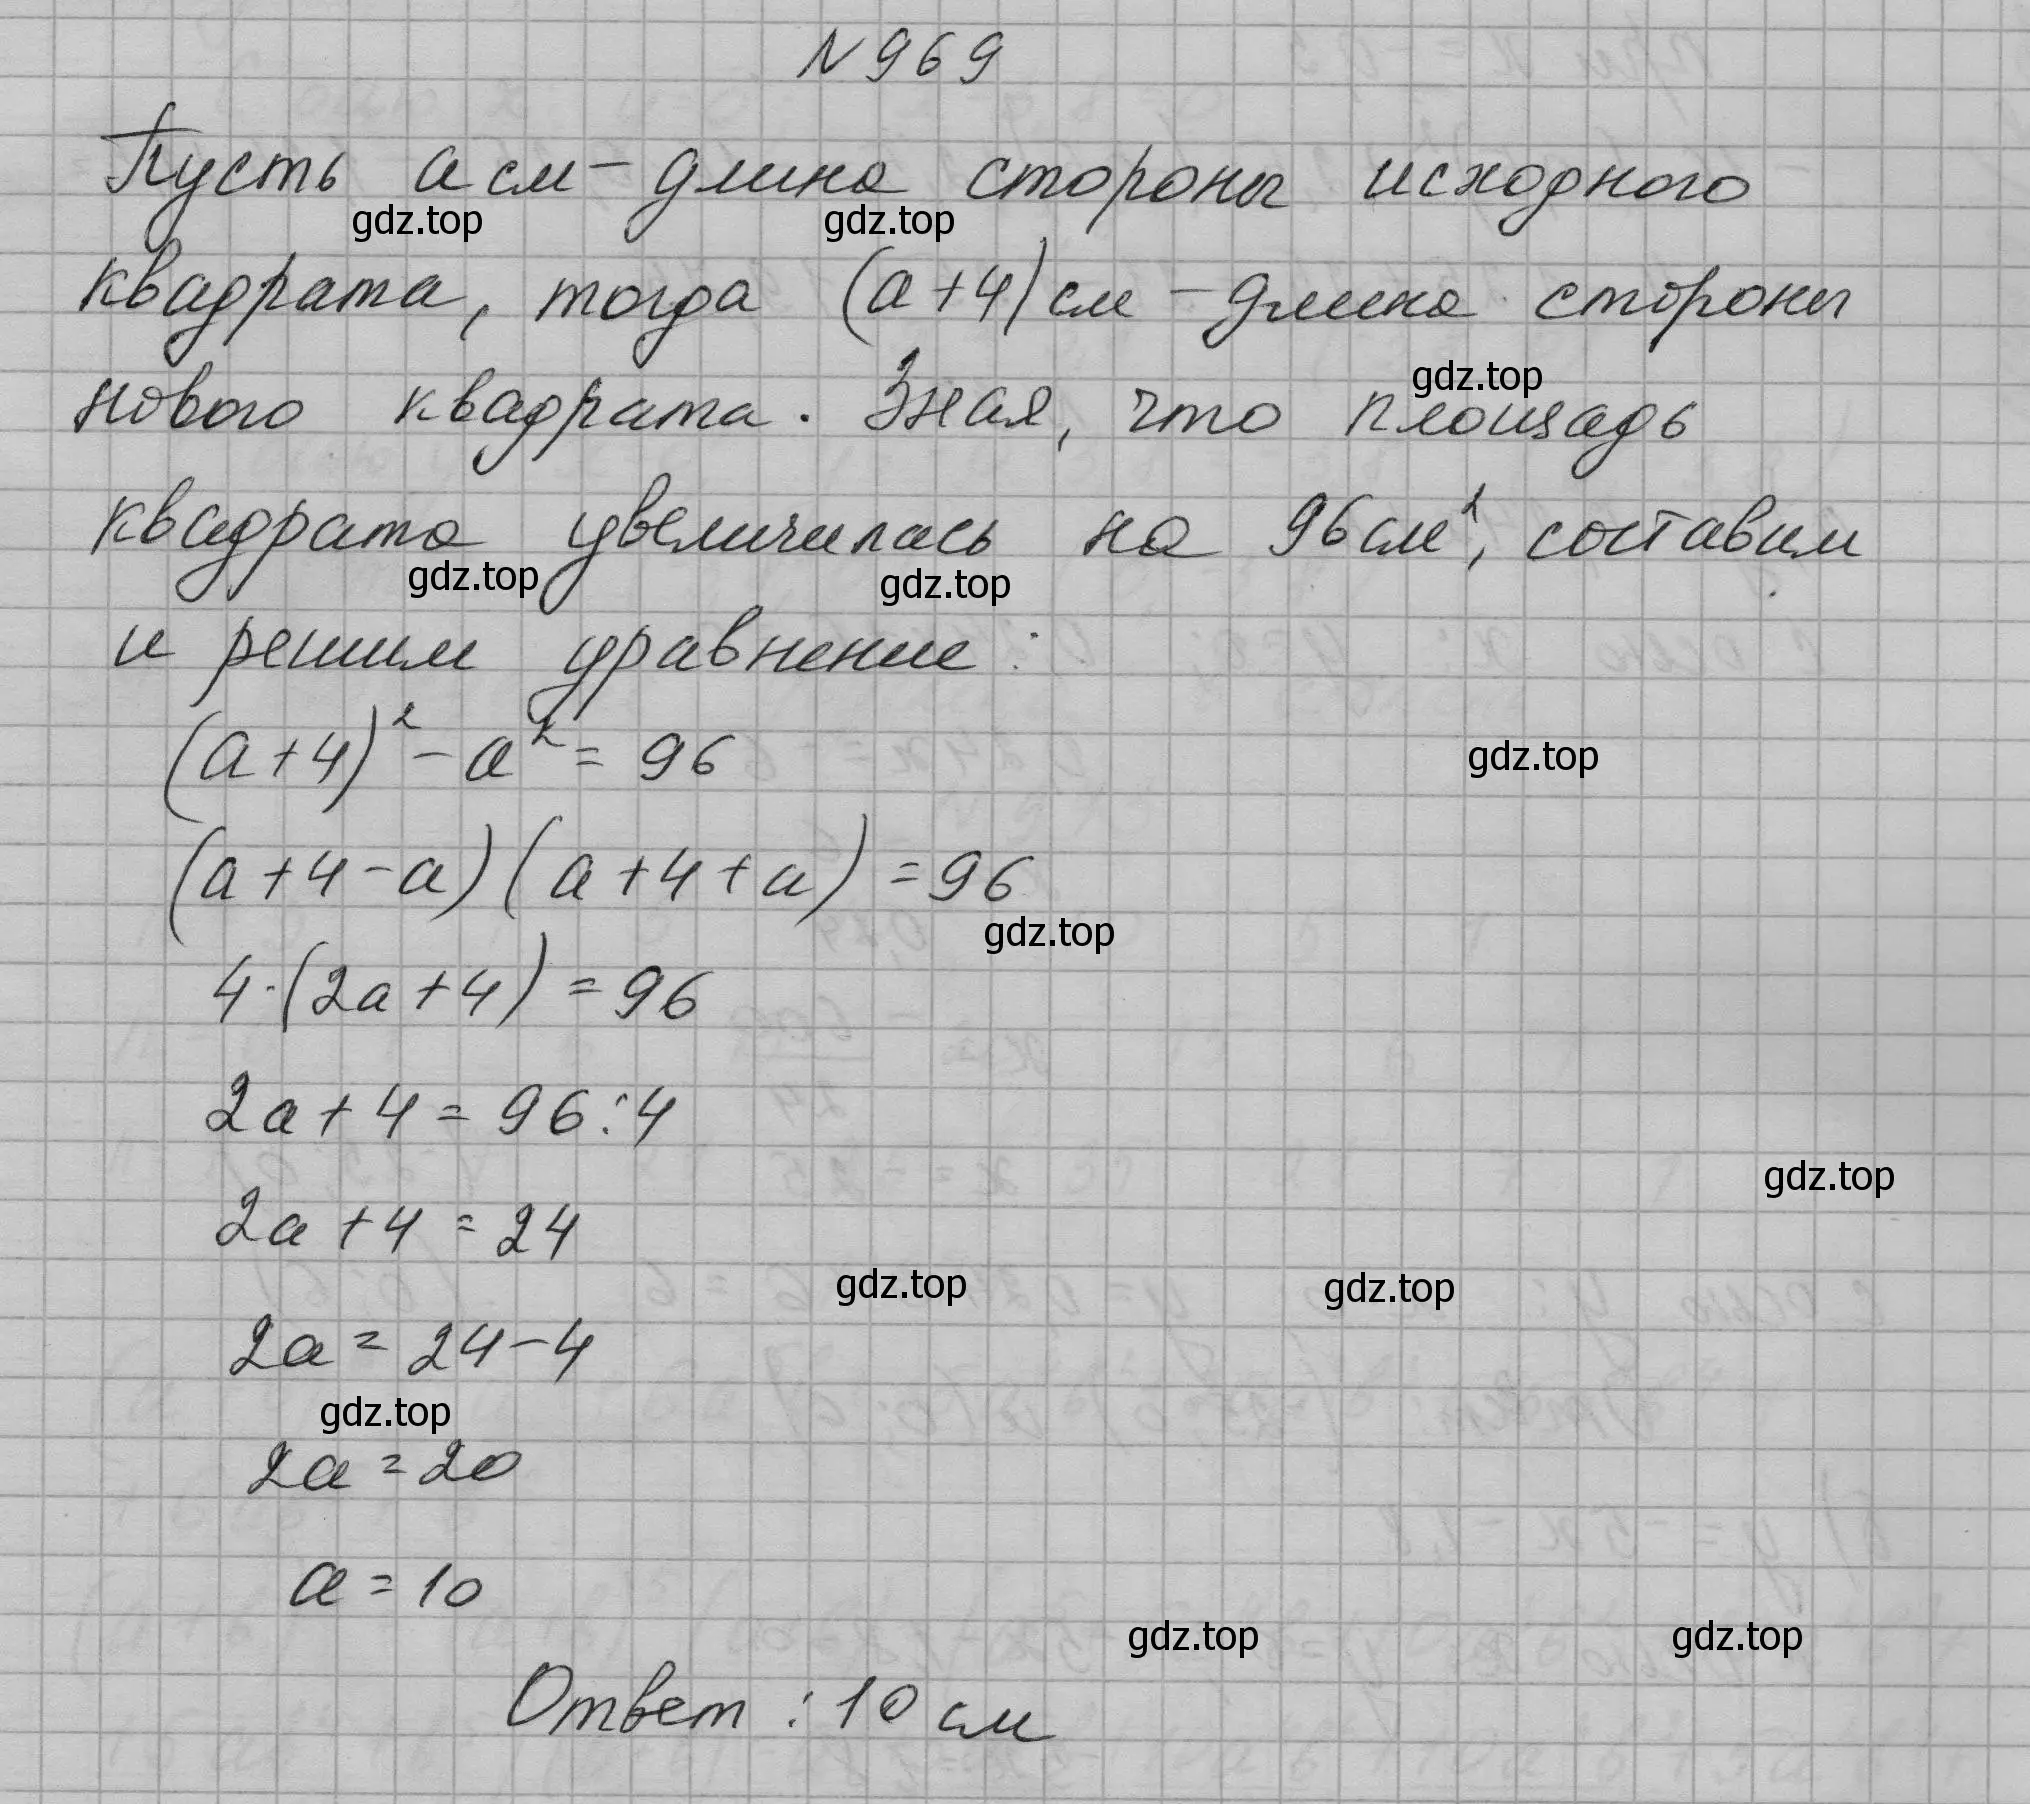 N 969
Пусть a см – длина стороны исходного
gdz.top gdz.top gdz.top
квадрата, тогда (a+4) см – длина стороны
gdz.top
нового квадрата. Зная, что площадь
квадрата увеличилась на 96 см², составим
gdz.top gdz.top
и решим уравнение:
(a+4)² – a² = 96
gdz.top
(a+4–a)(a+4+a) = 96
gdz.top
4·(2a+4) = 96
2a+4 = 96:4
gdz.top
2a+4 = 24
gdz.top gdz.top
2a = 24–4
gdz.top
2a = 20
a = 10
gdz.top gdz.top
Ответ: 10 см